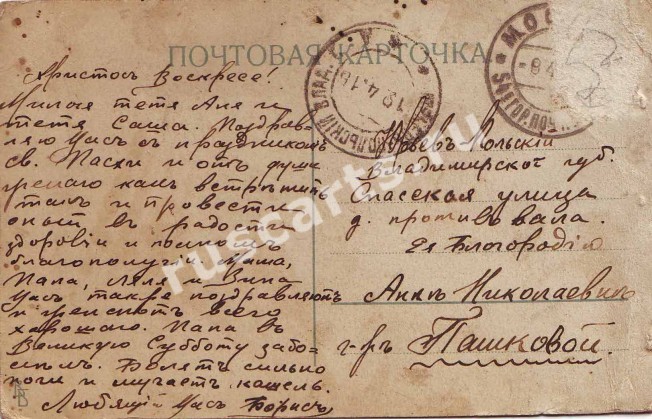 ПОЧТОВАЯ КАРТОЧКА.
Христосъ Воскресе!
Милая тетя Аня и
тетя Саша. Поздрав-
ляю Васъ съ праздникомъ
св. Пасхи и отъ души
желаю вамъ встрѣтить
такъ и провести
оный въ радости
здоровіи и полномъ
благополучіи. Мама,
Папа, Ляля и Зина
Васъ также поздравляютъ
и желаютъ всего
хорошаго. Папа въ
Великую Субботу забо-
лѣлъ. Болятъ сильно
ноги и мучаетъ кашель.
Любящій Васъ Борисъ
Юрьевъ-Польскій
Владимирской губ.
Спасская улица
д. противъ вала.
Ея Благородію
Аннѣ Николаевнѣ
г-жѣ Пашковой.
МОС
-8 4
54 ГОР. ПОЧ
ПОЛЬСКІЙ ВЛАД. Г.
12.4.16
rugcarts.ru